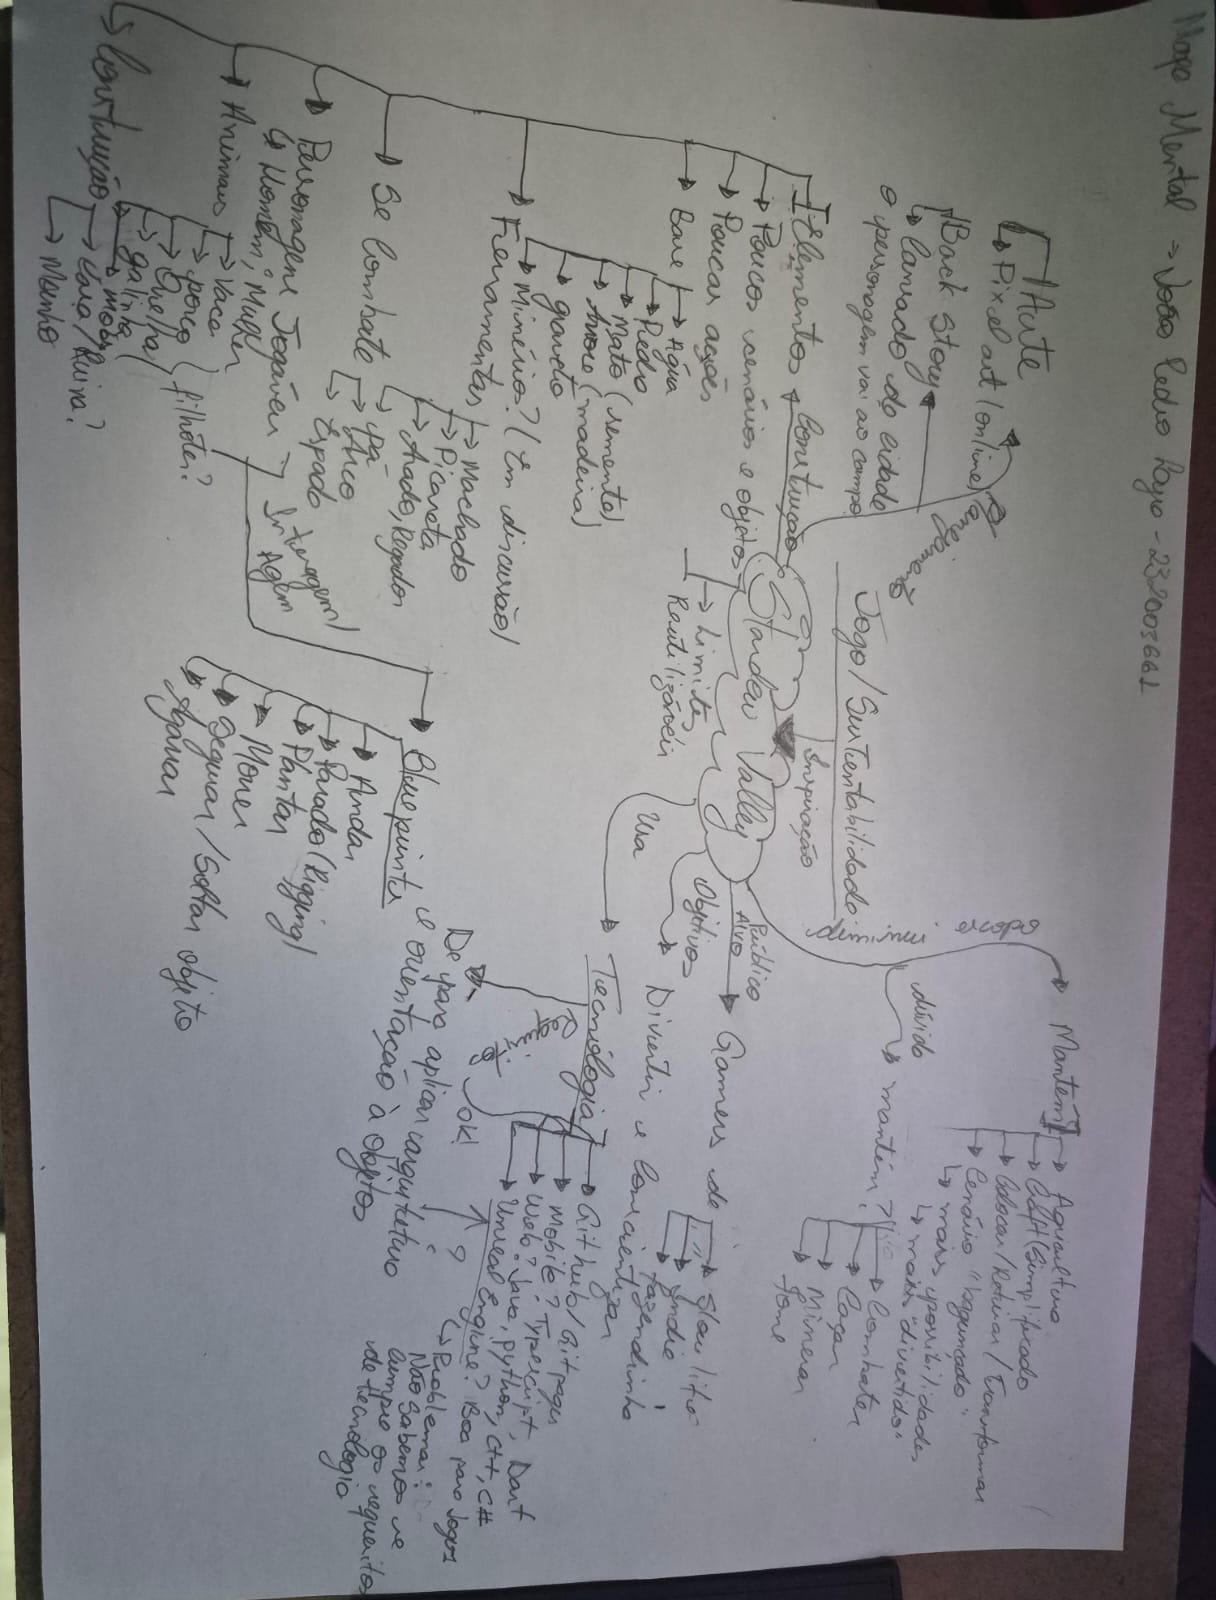 Mapa Mental → João Pedro - 232003661
Arte
→ Pixel art (online)
Back Story
→ Cansado da cidade
o personagem vai ao campo
Jogo / Sustentabilidade
Inspiração
Stardew Valley
Construção
Elementos
→ Poucos cenários e objetos
→ Poucas ações
→ Base
→ Água
→ Pedra
→ Mato (semente)
→ Árvore (madeira)
→ graveto
→ Minério? (Em discussão)
→ Ferramentas
→ Machado
→ Picareta
→ Arado, Regador
→ pá
→ Se Combate
→ Arco
→ Espada
→ Personagens Jogáveis
↳ Homem; Mulher
Interagem /
Agem
→ Animais
→ Vaca
→ porco
→ Ovelha
→ galinha
filhote?
→ Construção
→ Casa / Ruína?
→ Moinho
→ Limites
Reutilizáveis
diminui escopo
→ Mantém
→ Aquicultura
→ Craft (Simplificado)
→ Colocar / Retirar / Transformar
→ Cenário "bagunçado"
↳ mais possibilidades
↳ mais "divertido"
dúvida
→ mantém?
→ Combater
→ Caçar
→ Minerar
→ fome
Público
Alvo
→ Gamers de
→ Indie
→ fazendinha
Objetivos
→ Divertir e Conscientizar
Usa
→ Tecnologia
→ Github / Gitpages
→ Mobile? Typescript, Dart
→ Web? Java, python, C++, C#
→ Unreal Engine? Boa para jogos
↳ Problemas:
Não sabemos se
cumpre os requisitos
de tecnologia
OK!
?
De para aplicar arquitetura
e orientação à objetos
→ Blueprints
→ Andar
→ Parado (Rigging)
→ Plantar
→ Mover
→ Segurar / Soltar objeto
→ Agarrar